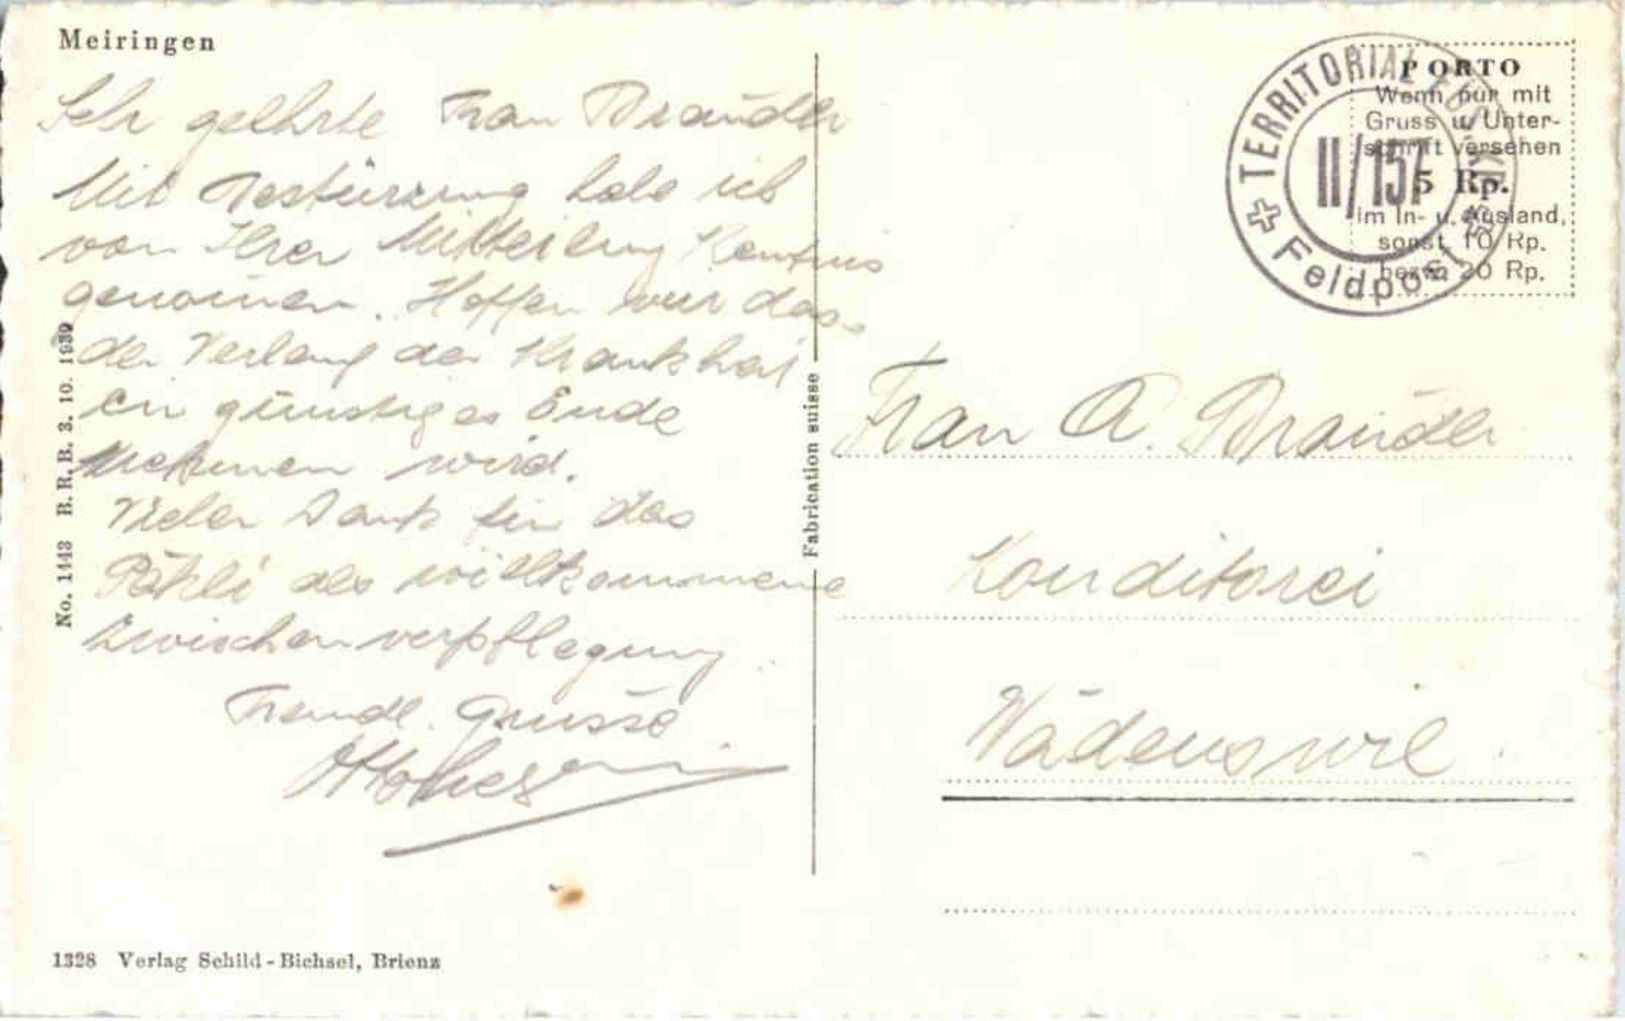 Meiringen
Sehr geehrte Frau Brändle
Mit Bestürzung habe ich
von Ihrer Mitteilung Kentnis
genommen. Hoffen wir dass
der Verlauf der Krankheit
ein günstiges Ende
nehmen wird.
Vielen Dank für das
Päkli als willkommene
Zwischenverpflegung
Freundl. Grüsse
No. 1443 B. R. B. 3. 10. 1939
1328 Verlag Schild-Bichsel, Brienz
Fabrication suisse
PORTO
Wenn nur mit
Gruss u. Unter-
schrift versehen
5 Rp.
im In- u. Ausland,
sonst 10 Rp.
bezw. 20 Rp.
TERRITORIAL
II/157
Feldpost
Frau A. Brändle
Konditorei
Wädenswil